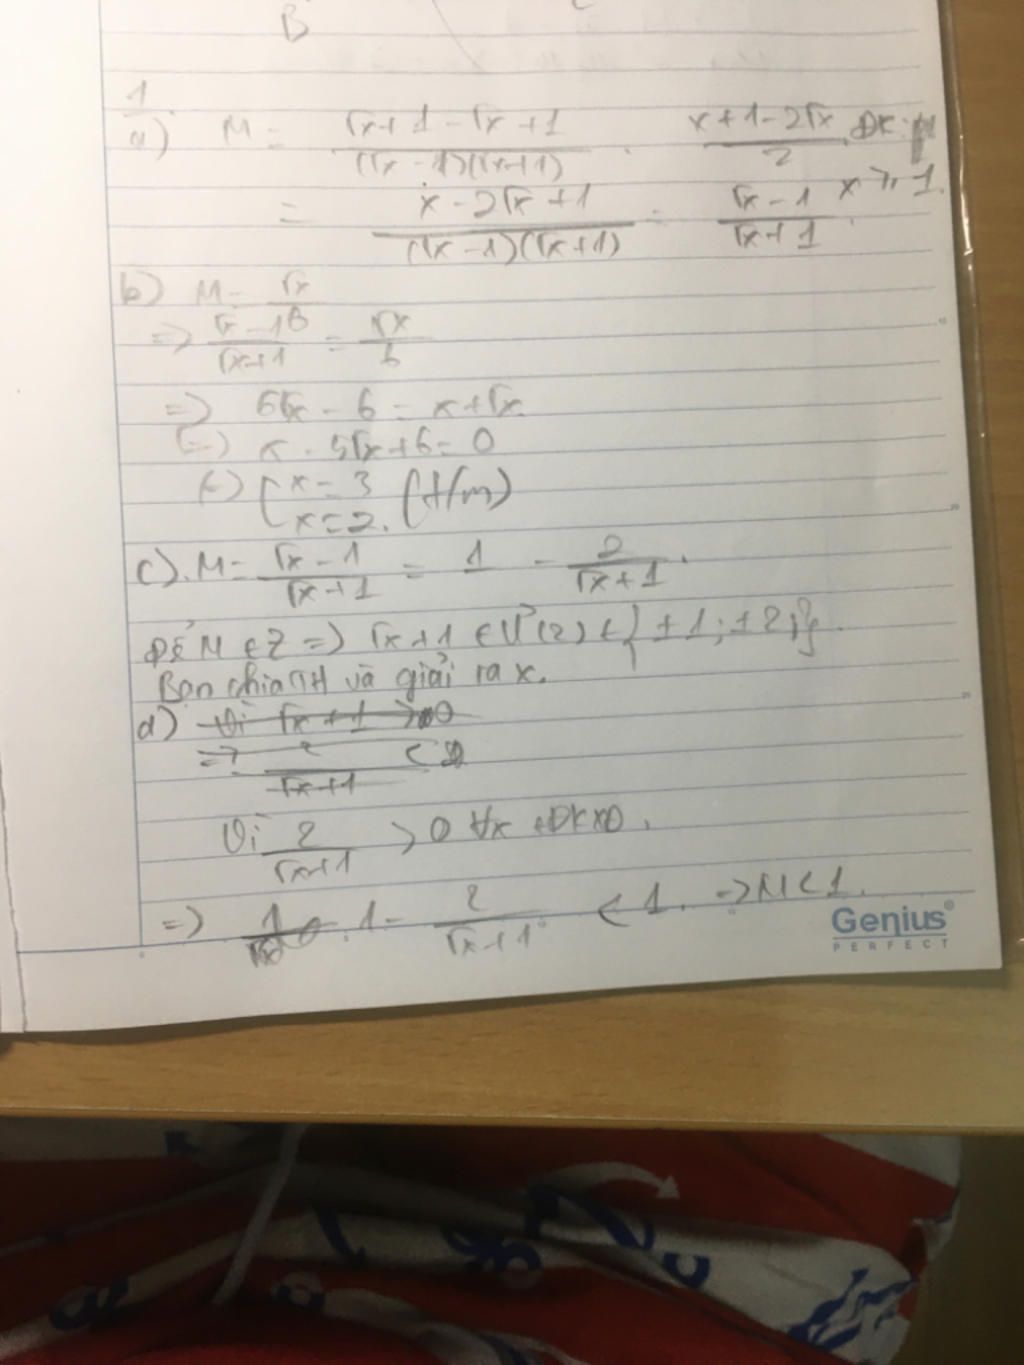 B
1
a) M = (√x+1-√x+1)/((√x-1)(√x+1)) . (x+1-2√x)/2 ĐK:
= (x-2√x+1)/((√x-1)(√x+1)) = (√x-1)/(√x+1) x ≥ 1.
b) M = √x/6
=> (√x-1)/(√x+1) = √x/6
=> 6√x - 6 = x+√x
(=) x - 5√x+6=0
(=) [ x=3
x=2. (t/m)
c). M = (√x-1)/(√x+1) = 1 - 2/(√x+1).
Để M ∈ Z => √x+1 ∈ Ư(2) ∈ {±1; ±2;}.
Bạn chia TH và giải ra x.
d) Vì √x+1 > 0
=> 2/(√x+1) <
Vì 2/(√x+1) > 0 ∀x ∈ ĐKXĐ.
=> 1 - 2/(√x+1) < 1. => M < 1.
Genius
PERFECT